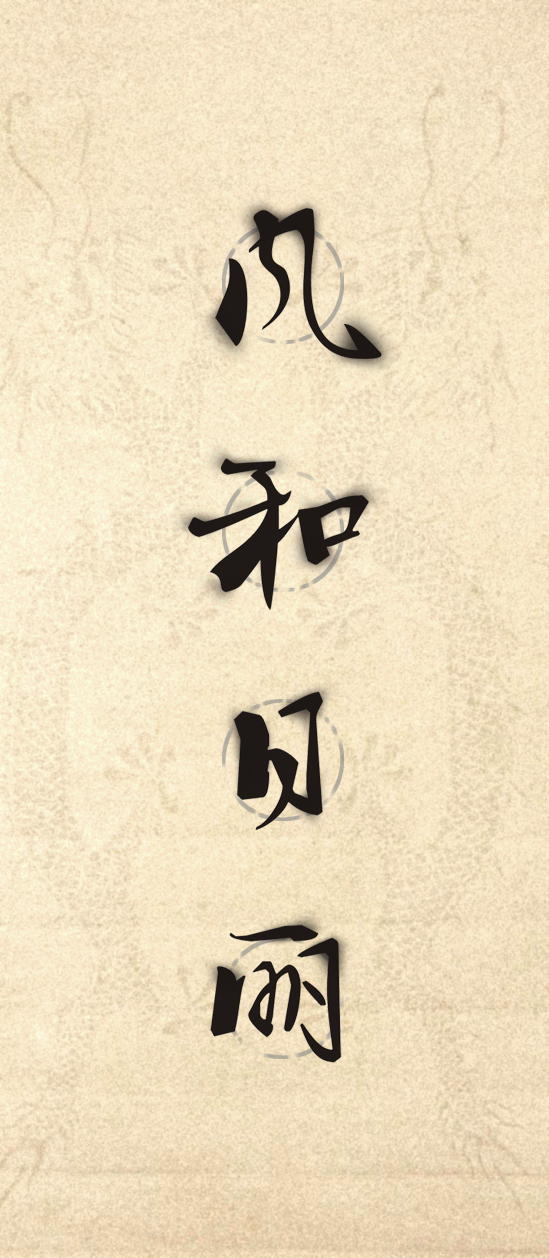 风和日丽